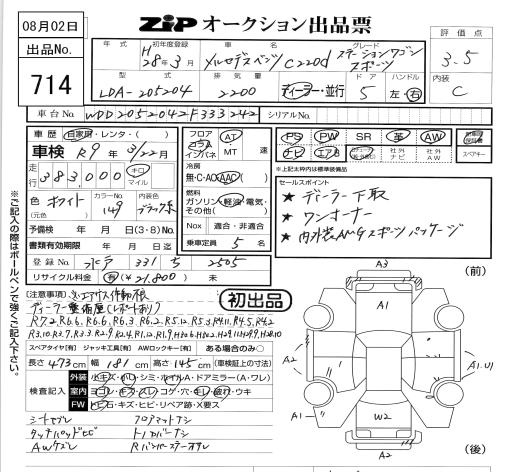 08月02日
ZIP オークション出品票
出品No.
714
評価点
3.5
内装
C
年式 初年度登録 車名 グレード
H 28年3月 メルセデスベンツ C220d ステーションワゴン スポーツ
型式 排気量 ドア ハンドル
LDA-205204 2200 ディーラー・並行 5 左・右
車台No. WDD2052042F333242 シリアルNo.
車歴 自家用・レンタ・( )
車検 R9年3/22月
走行 383,000 キロ マイル
色 ホワイト (元色) カラーNo. 149 内装色 ブラック系
予備検 年 月 日(3・8)No.
書類有効期限 年 月 日迄
登録No. 水戸 331 ち 2505
リサイクル料金 有(¥21,800) 未
フロア コラム インパネ AT MT 速
冷房 無・C・AC・AAC( )
燃料 ガソリン・軽油・電気・その他( )
Nox 適合・非適合
乗車定員 5 名
PS PW SR 革 AW
ナビ エアB 社外ナビ 社外AW
スペアキー
※上記太枠内は標準装備品
セールスポイント
★ ディーラー下取
★ ワンオーナー
★ 内外装AMGスポーツパッケージ
[注意事項]
ディーラー整備歴(レポートあり)
R7.2 R6.6 R6.6 R6.3 R6.2 R5.12 R5.3 R4.11 R4.5 R4.2
初出品
スペアタイヤ[有] ジャッキ工具[有] AWロックキー[有] ある場合のみ○
長さ 473cm 幅 181cm 高さ 145cm (車検証上の寸法)
検査記入
外装 小キズ・小凹・シミ・ホイルA・ドアミラー(A・ワレ)
室内 ヨゴレ・キズ・スレ・コゲ・穴・キレ・破れ・ウキ
FW トビ石・キズ・ヒビ・リペア跡・X要ス
シートスレ フロアマットナシ
タッチパッドヒビ
AWスレ
※ご記入の際はボールペンで強くご記入下さい。
(前)
A3
A1
A2
A1.U1
A1
W2
A2
(後)